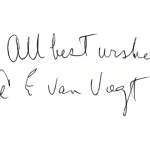 All best wishe
E van Vogt